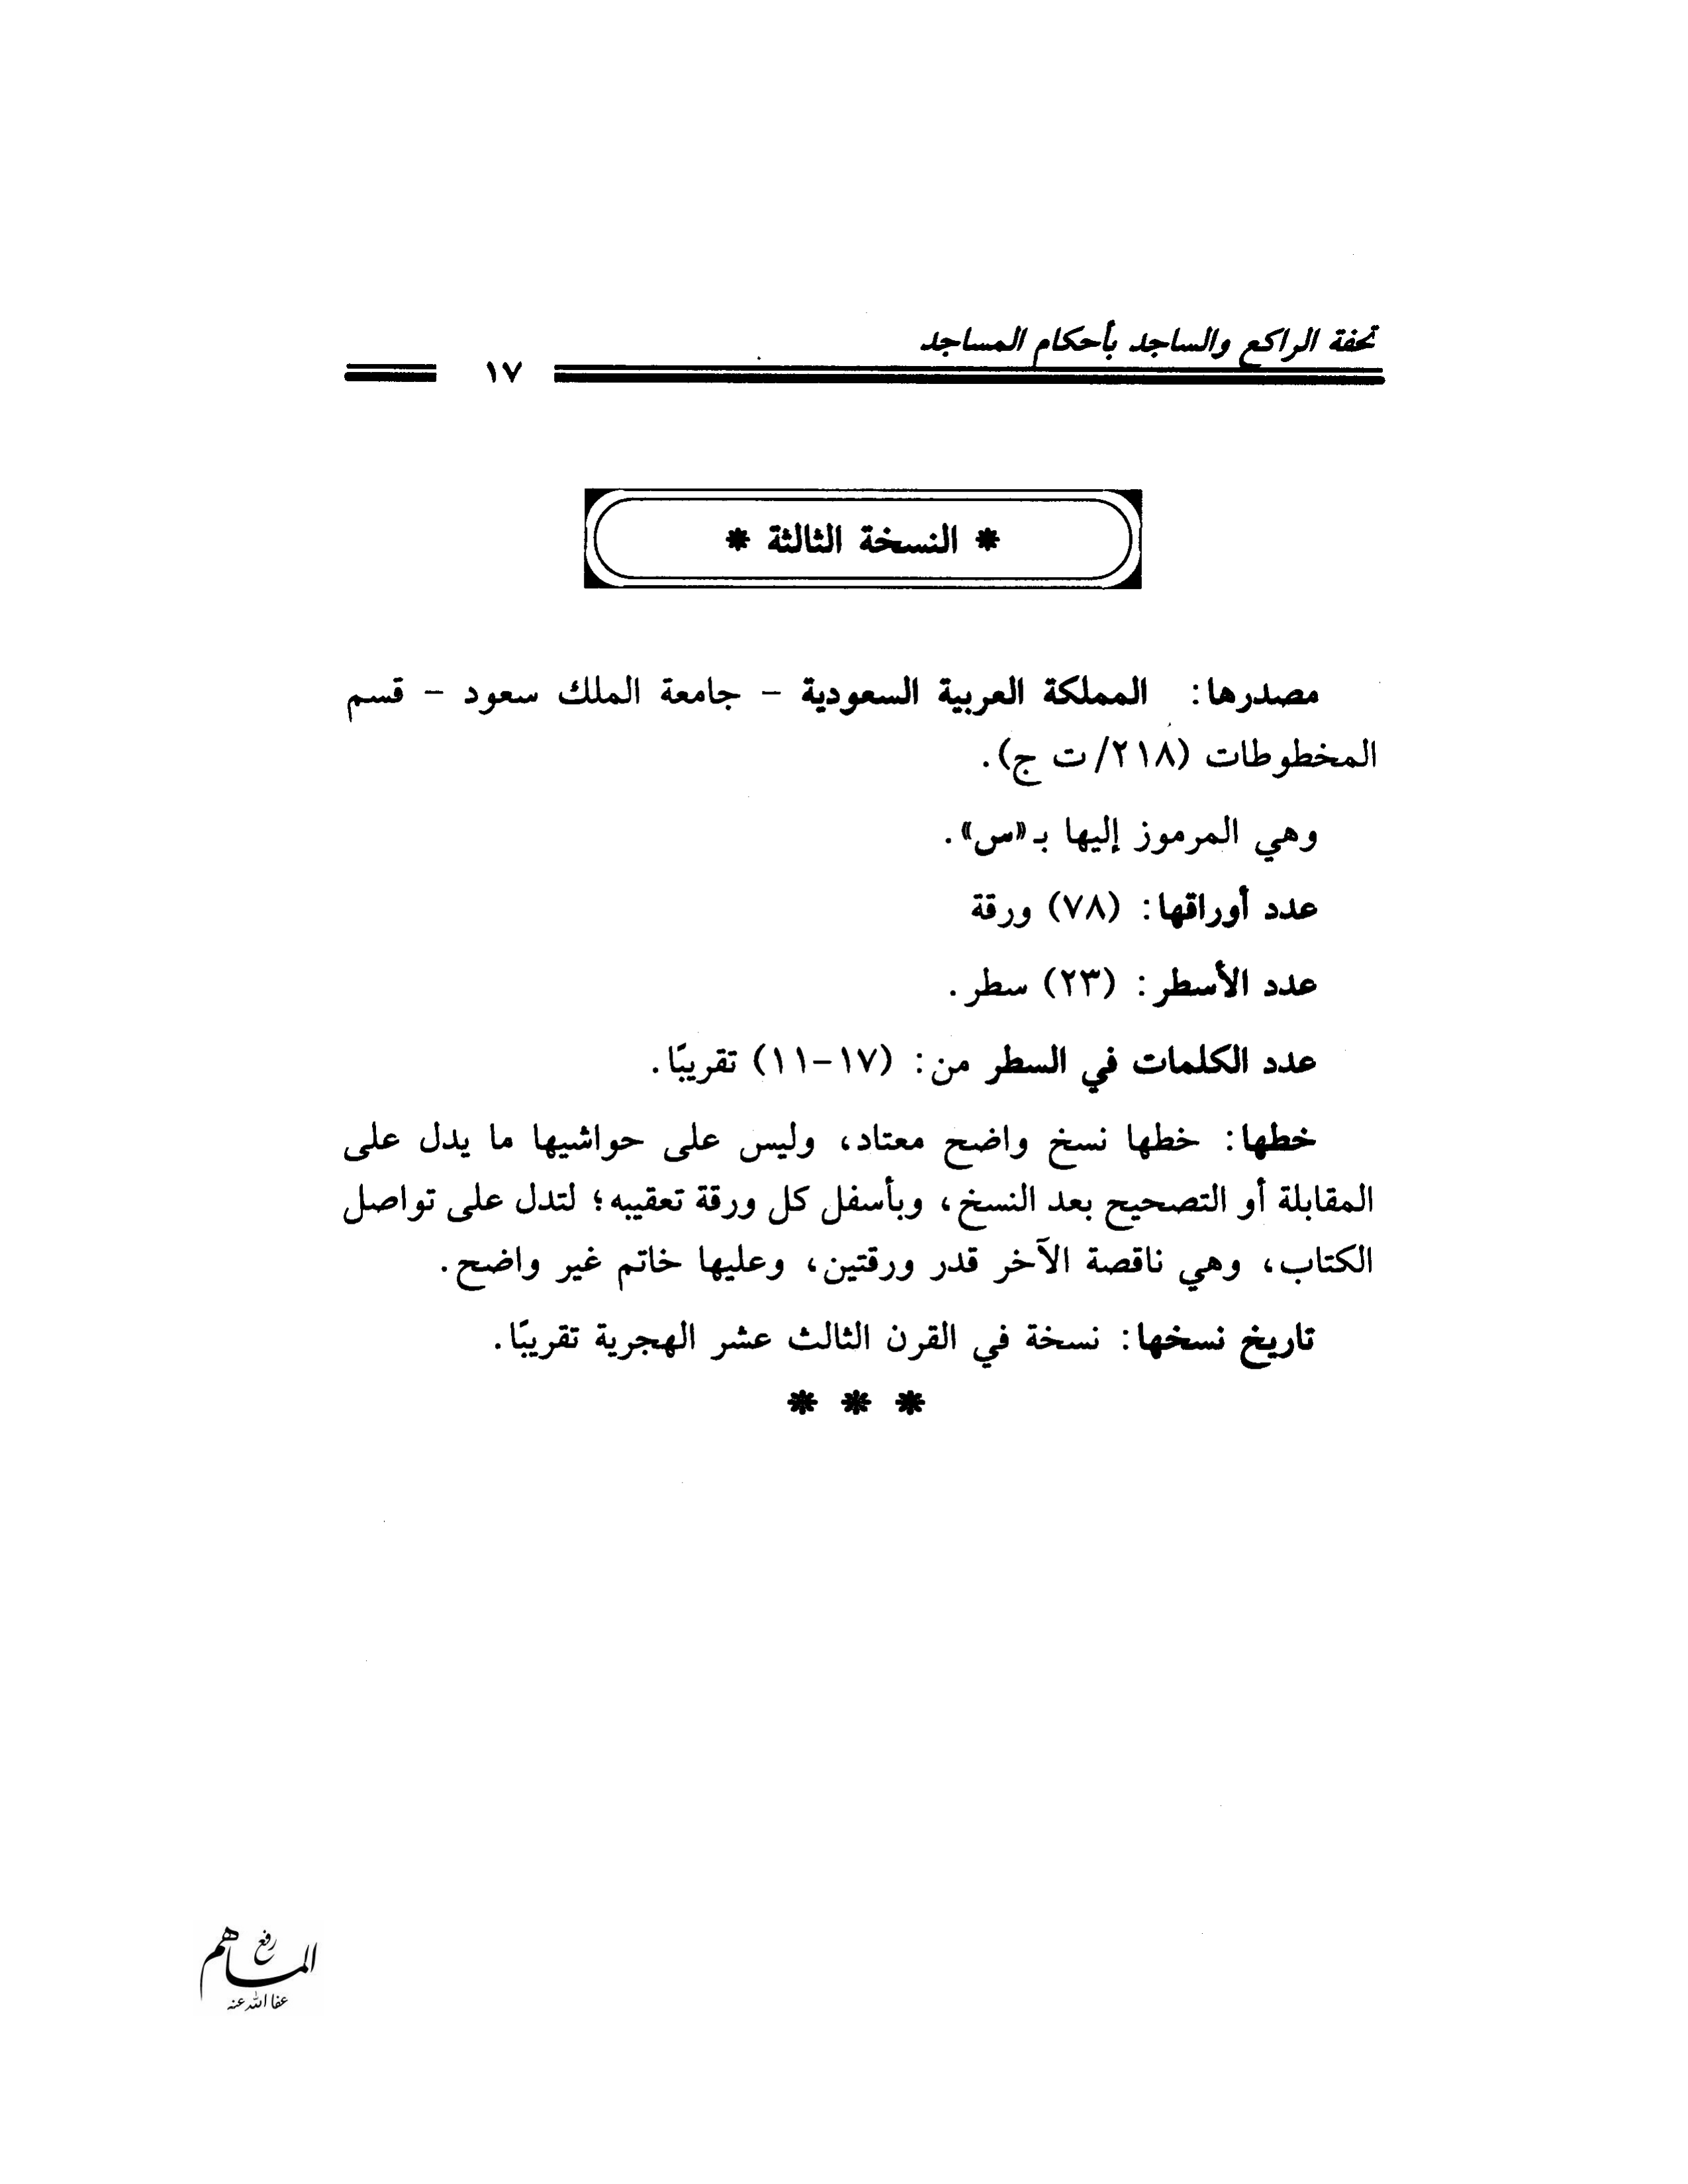 تحفة الراكع والساجد بأحكام المساجد
١٧
* النسخة الثالثة *
مصدرها: المملكة العربية السعودية - جامعة الملك سعود - قسم
المخطوطات (٢١٨/ ت ج).
وهي المرموز إليها بـ«س».
عدد أوراقها: (٧٨) ورقة
عدد الأسطر: (٢٣) سطر.
عدد الكلمات في السطر من: (١٧-١١) تقريبًا.
خطها: خطها نسخ واضح معتاد، وليس على حواشيها ما يدل على
المقابلة أو التصحيح بعد النسخ، وبأسفل كل ورقة تعقيبه؛ لتدل على تواصل
الكتاب، وهي ناقصة الآخر قدر ورقتين، وعليها خاتم غير واضح.
تاريخ نسخها: نسخة في القرن الثالث عشر الهجرية تقريبًا.
* * *
رفع
المساهم
عفا الله عنه